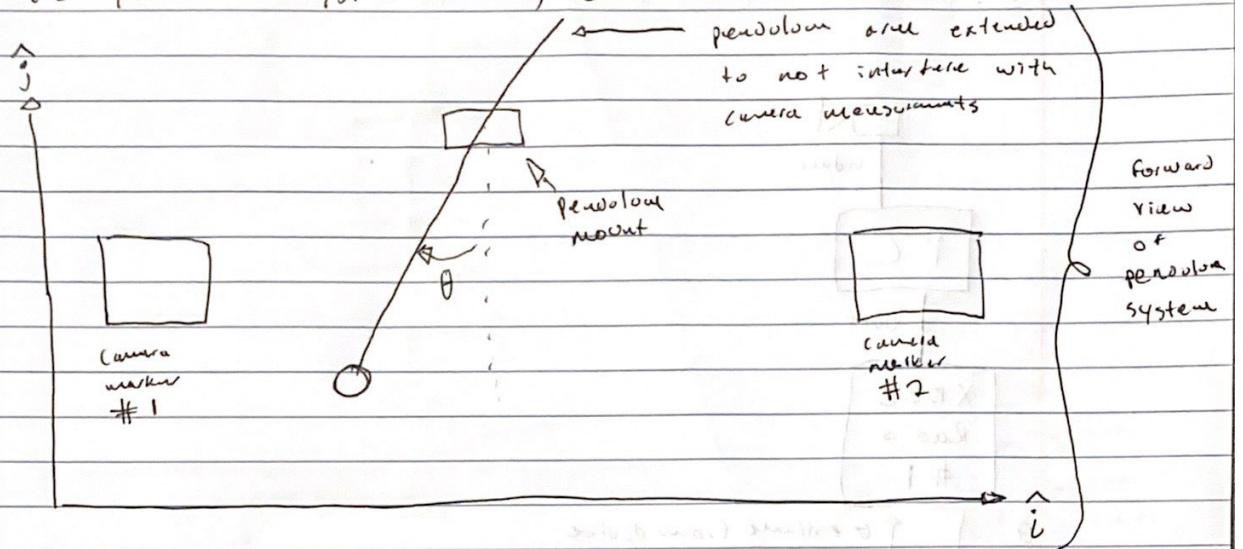 ĵ
pendulum arm extended
to not interfere with
camera measurements
pendulum
mount
θ
camera
marker
#1
camera
marker
#2
forward
view
of
pendulum
system
î